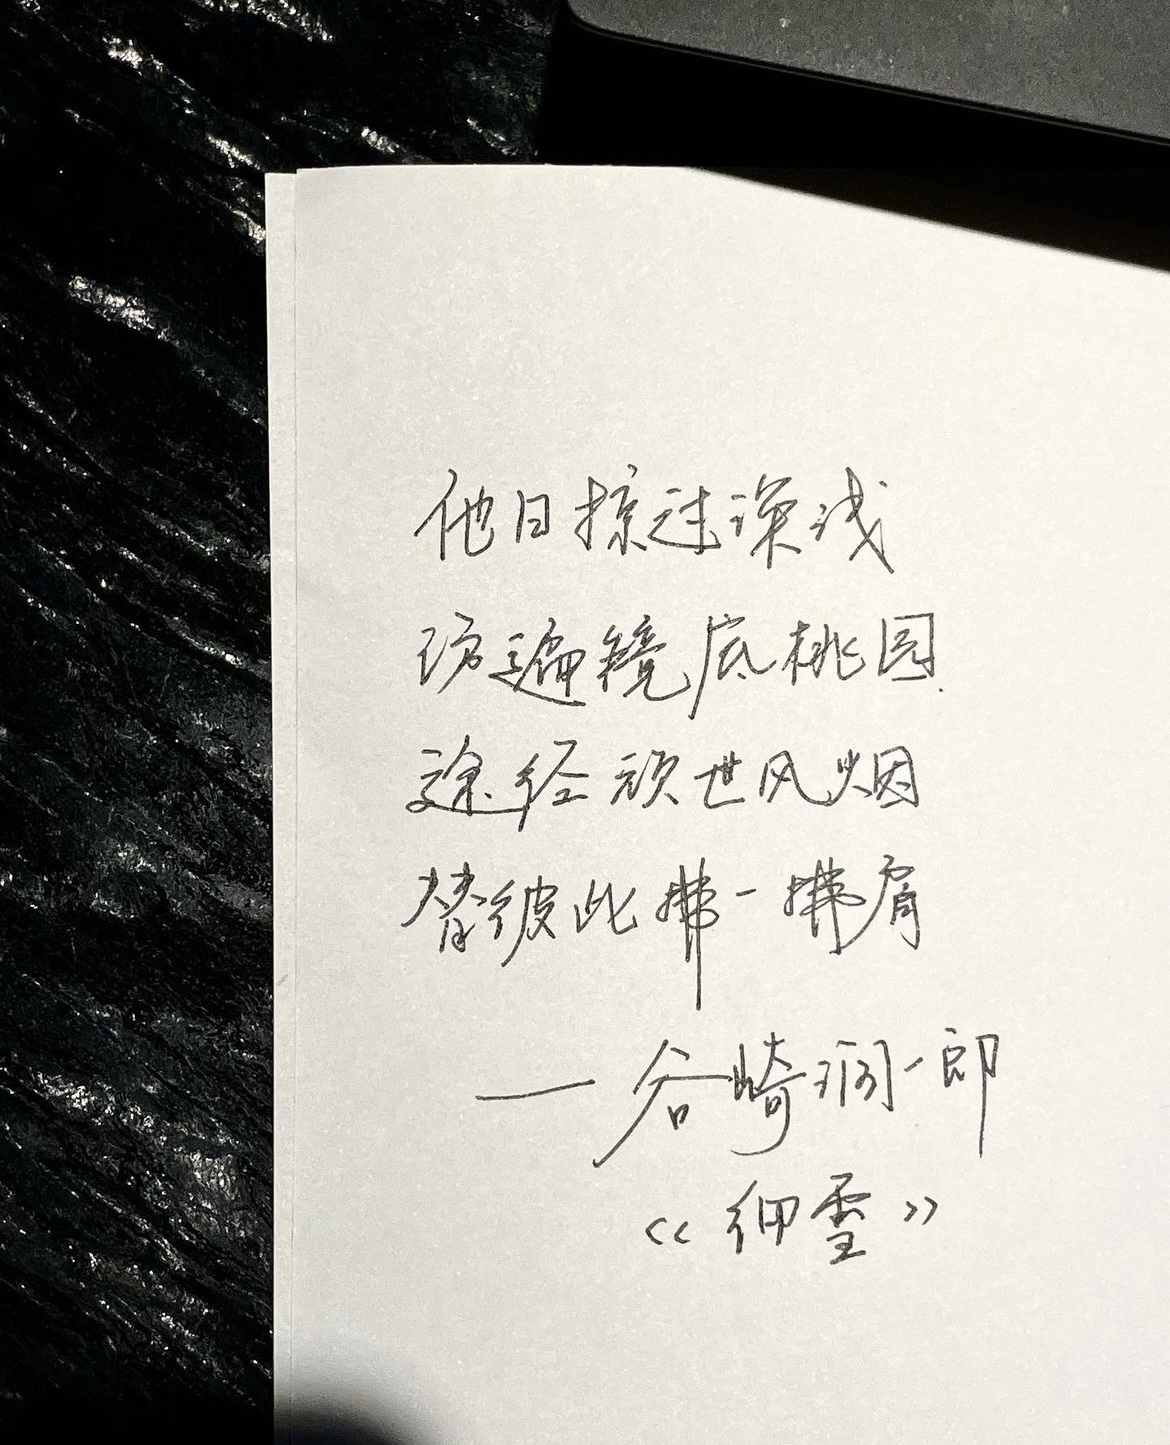 他日掠过深浅
访遍镜底桃园
途经顽世风烟
替彼此拂一拂肩
——谷崎润一郎
《细雪》